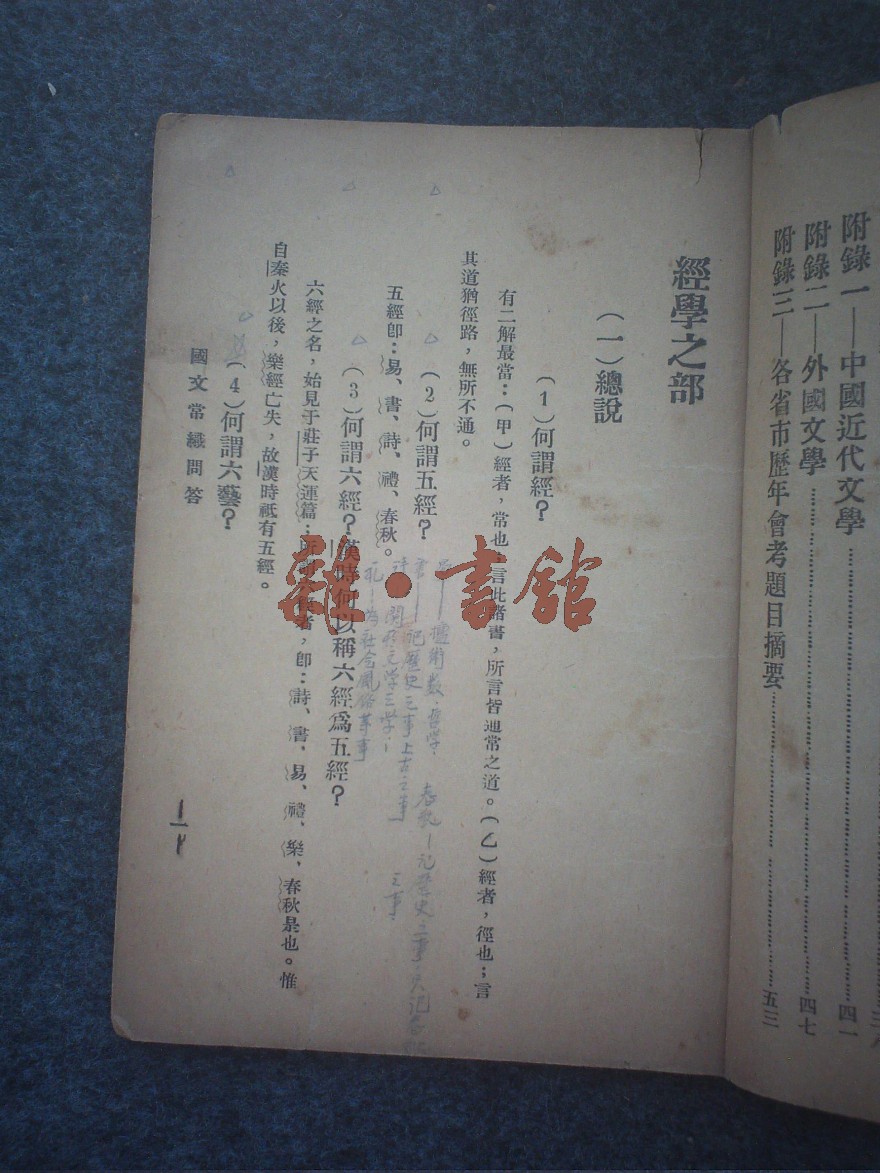 附錄一——中國近代文學……四一
附錄二——外國文學……四七
附錄三——各省市歷年會考題目摘要……五三
經學之部
(一)總說
(1)何謂經?
有二解最當:(甲)經者,常也;言此諸書,所言皆通常之道。(乙)經者,徑也;言
其道猶徑路,無所不通。
(2)何謂五經?
五經卽:易、書、詩、禮、春秋。
(3)何謂六經?漢時何以稱六經爲五經?
六經之名,始見于莊子天運篇;所謂六經者,卽:詩、書、易、禮、樂、春秋是也。惟
自秦火以後,樂經亡失,故漢時祇有五經。
(4)何謂六藝?
國文常識問答
一
書——記歷史之事上古之事
礼—为社会風俗等事
春秋—記歷史之事
之事
雜·書館